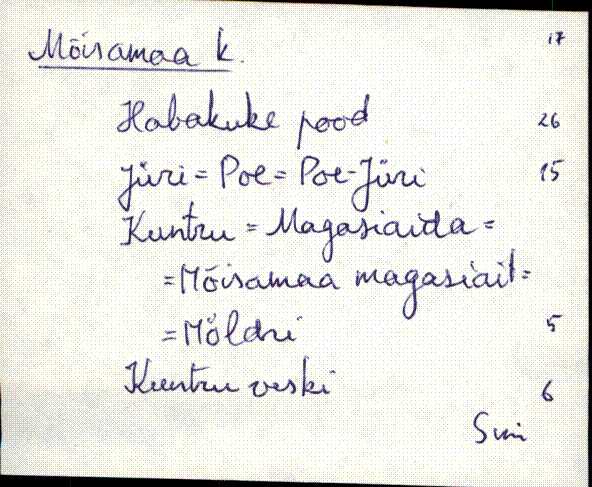 Mõisamaa k. 17
Habakuke pood 26
Jüri = Poe = Poe-Jüri 15
Kuntru = Magasiaida =
= Mõisamaa magasiait =
= Möldri 5
Kuntru veski 6